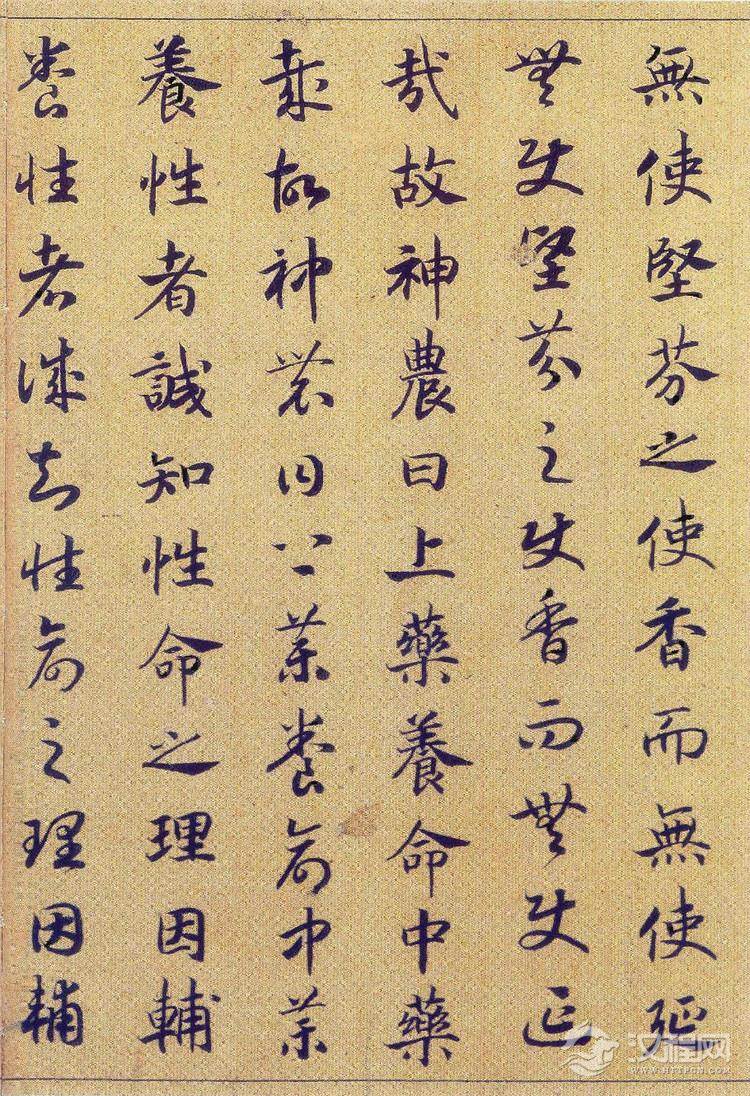 無使堅芬之使香而無使延
無使堅芬之使香而無使延
哉故神農曰上藥養命中藥
哉故神農曰上藥養命中藥
養性者誠知性命之理因輔
養性者誠知性命之理因輔
汉程网
HTTPCN.COM